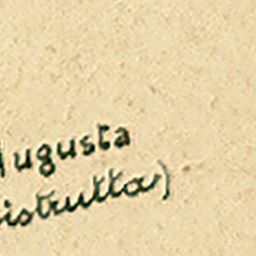 Augusta
distrutta)